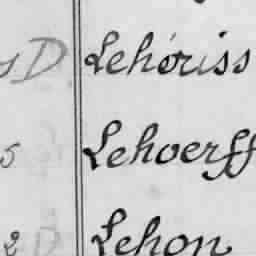 y D Lehóriss
5 Lehoerff
2 D Lehon